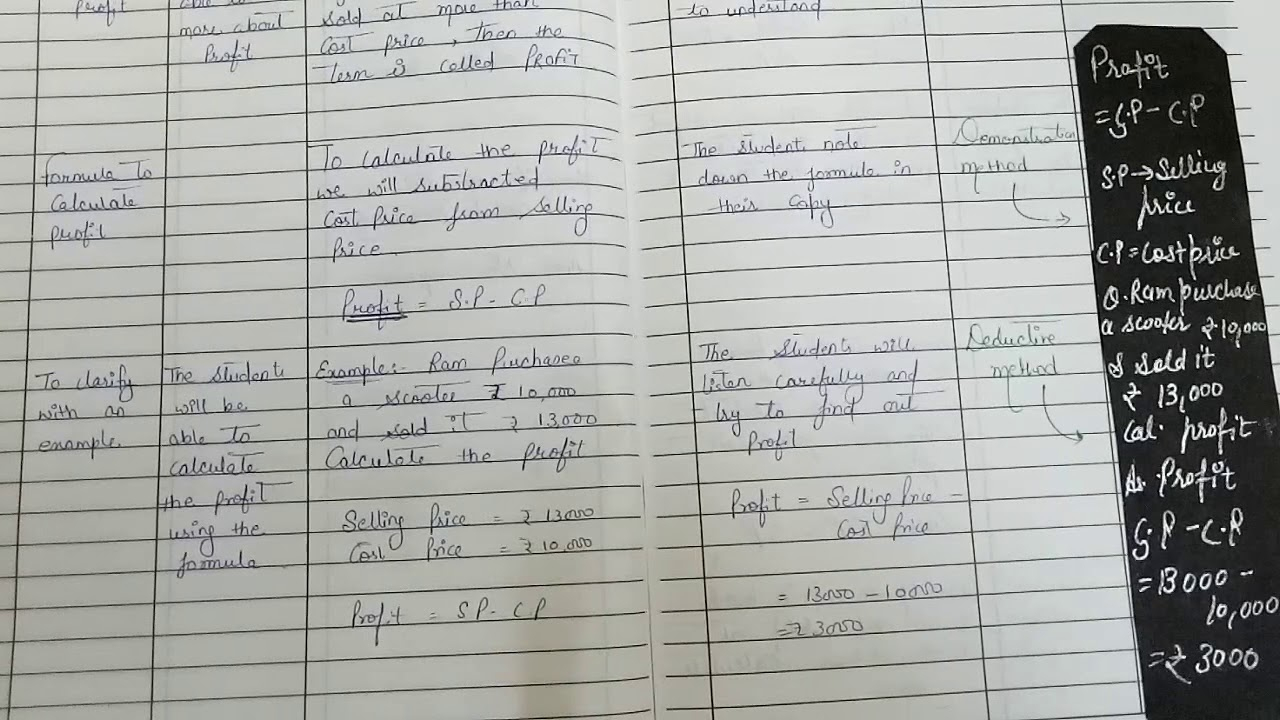 profit
able to
more about
Profit
sold at more than
Cost price, Then the
Term is called PROFIT
to understand
formula To
Calculate
profit
To Calculate the profit
we will substracted
Cost Price from selling
Price.
Profit = S.P - C.P
The student note
down the formula in
their Copy
Demonstration
method
To clarify
with an
example.
The students
will be
able to
calculate
the profit
using the
formula
Example:- Ram Purchases
a scooter ₹ 10,000
and sold it ₹ 13,000
Calculate the profit
Selling Price = ₹ 13000
Cost Price = ₹ 10,000
Profit = SP - CP
The students will
listen carefully and
try to find out
Profit
Profit = Selling Price -
Cost Price
= 13000 - 10000
= ₹ 3000
Deductive
method
Profit
= S.P - C.P
S.P → Selling
price
C.P = Cost price
Q. Ram purchase
a scooter ₹ 10,000
& sold it
₹ 13,000
Cal. profit
As. Profit
S.P - C.P
= 13000 -
10,000
= ₹ 3000